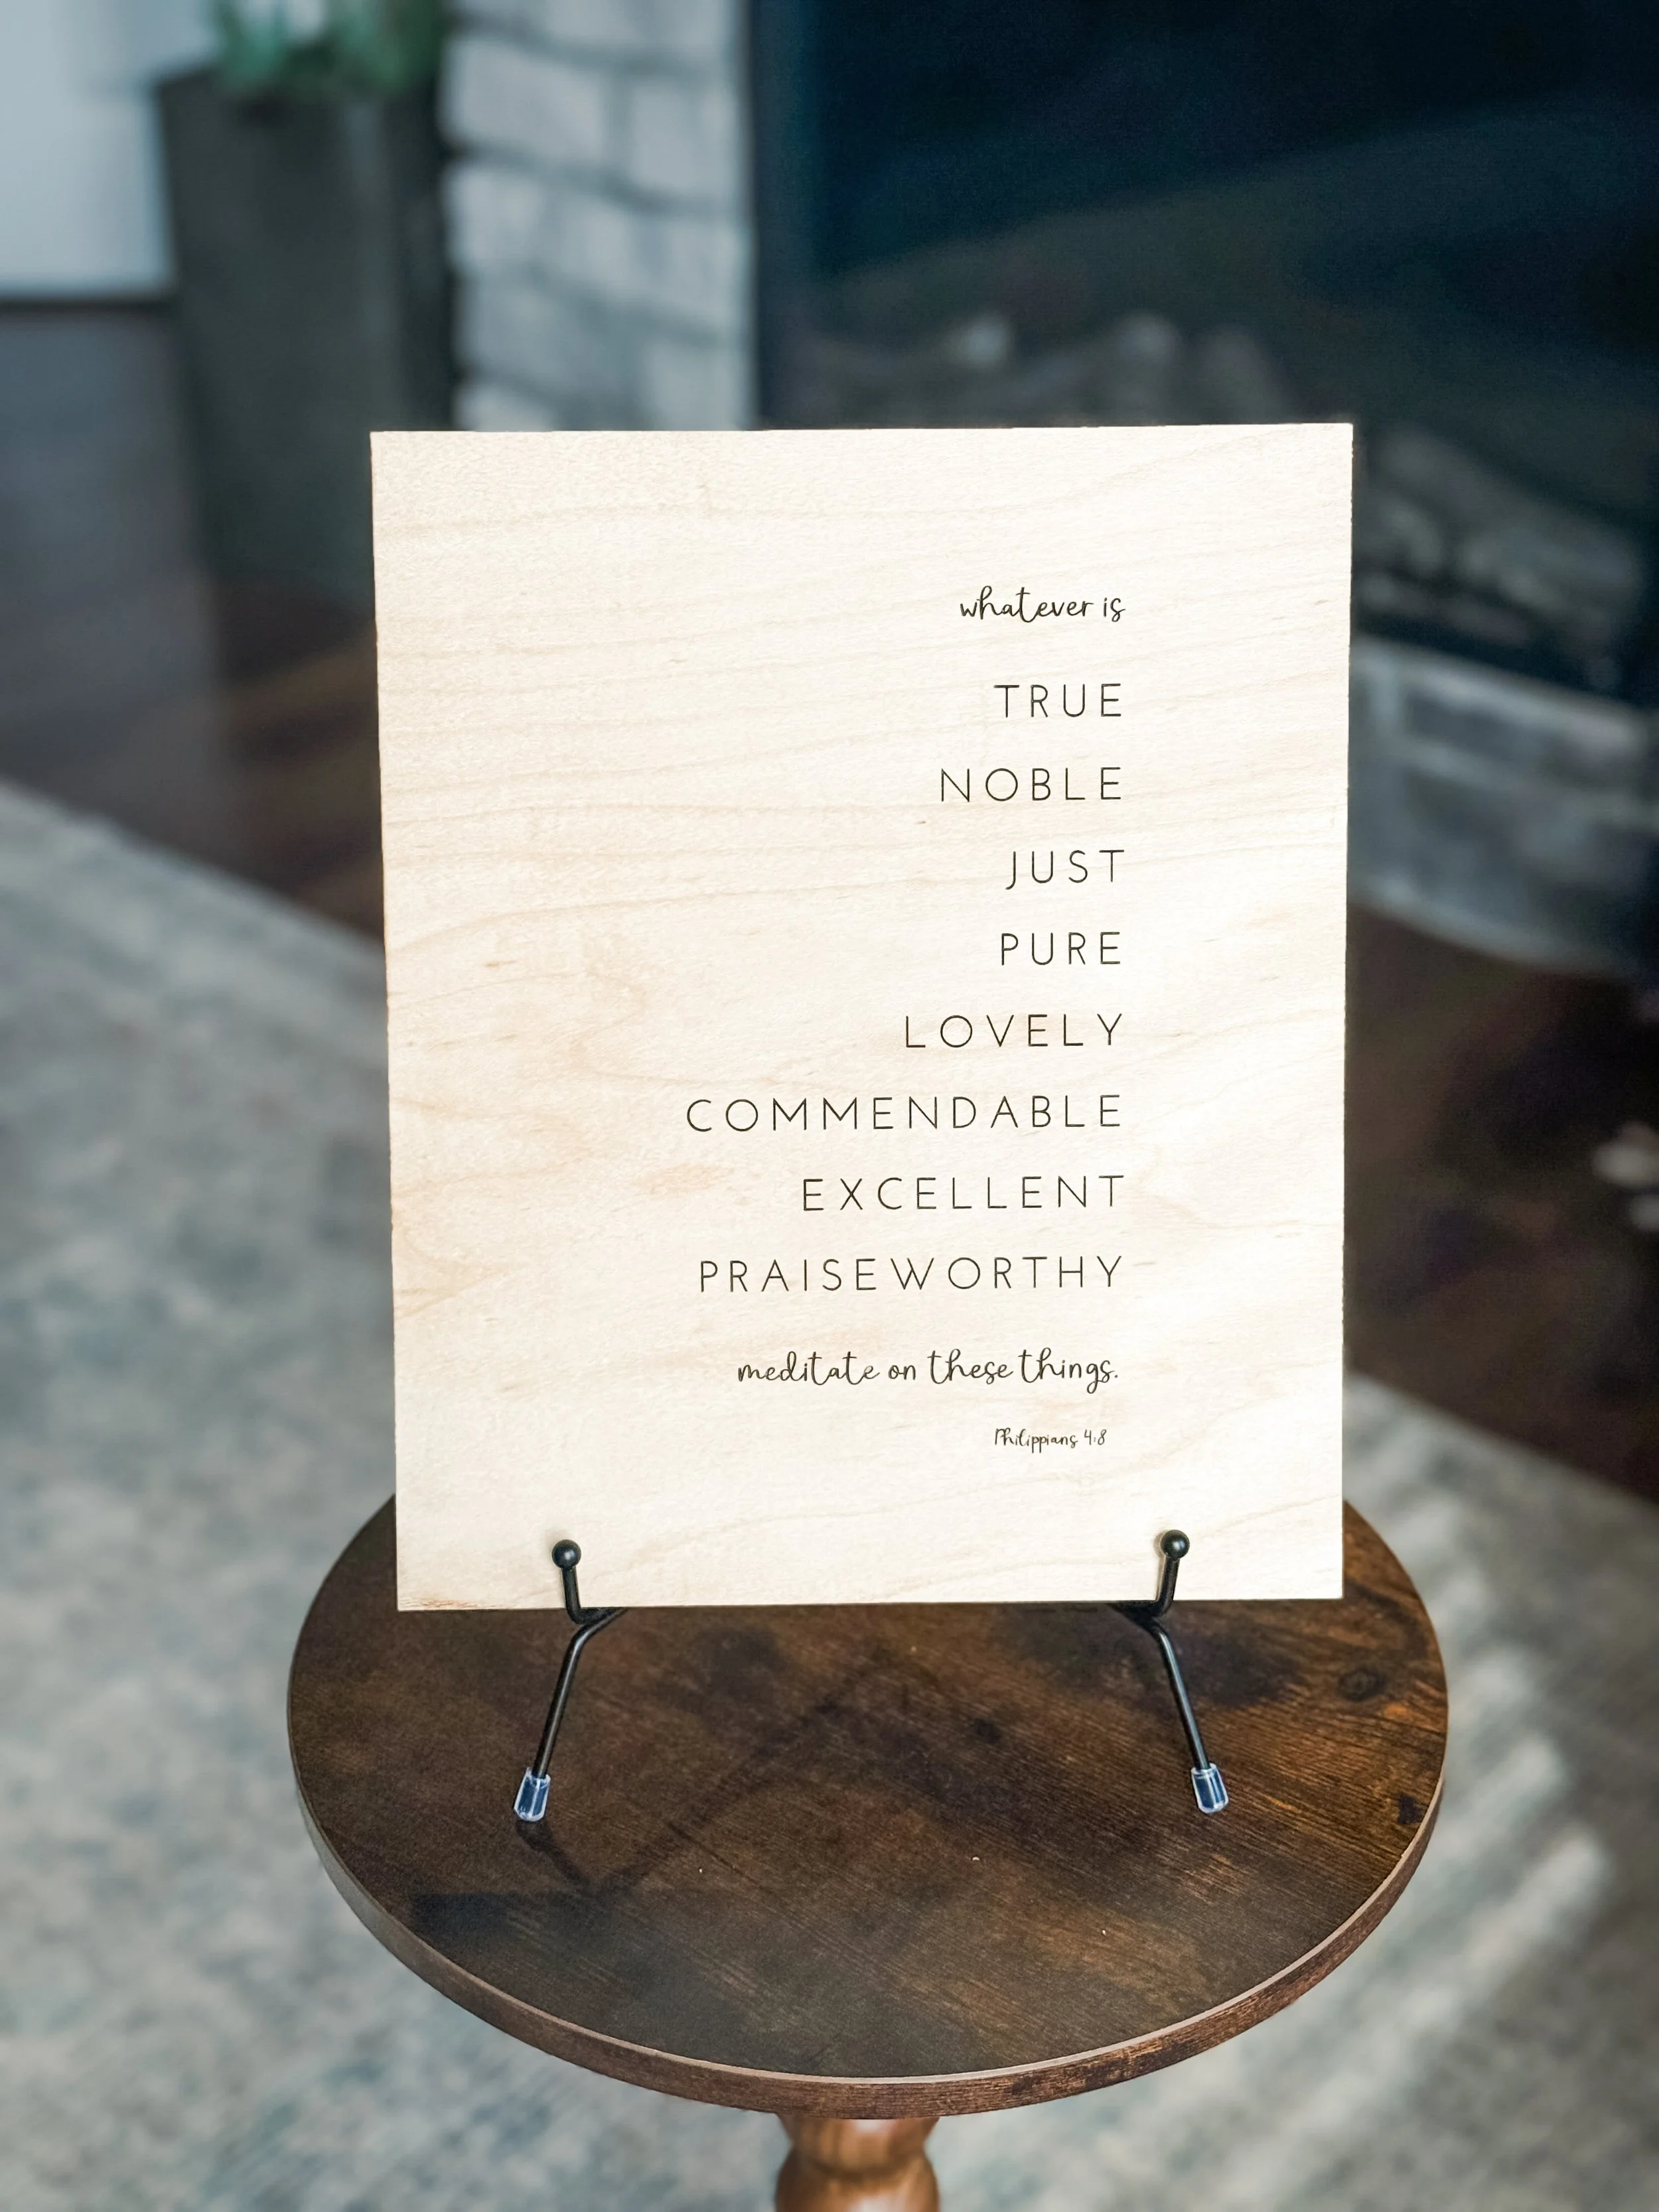 whatever is
TRUE
NOBLE
JUST
PURE
LOVELY
COMMENDABLE
EXCELLENT
PRAISEWORTHY
meditate on these things.
Philippians 4:8